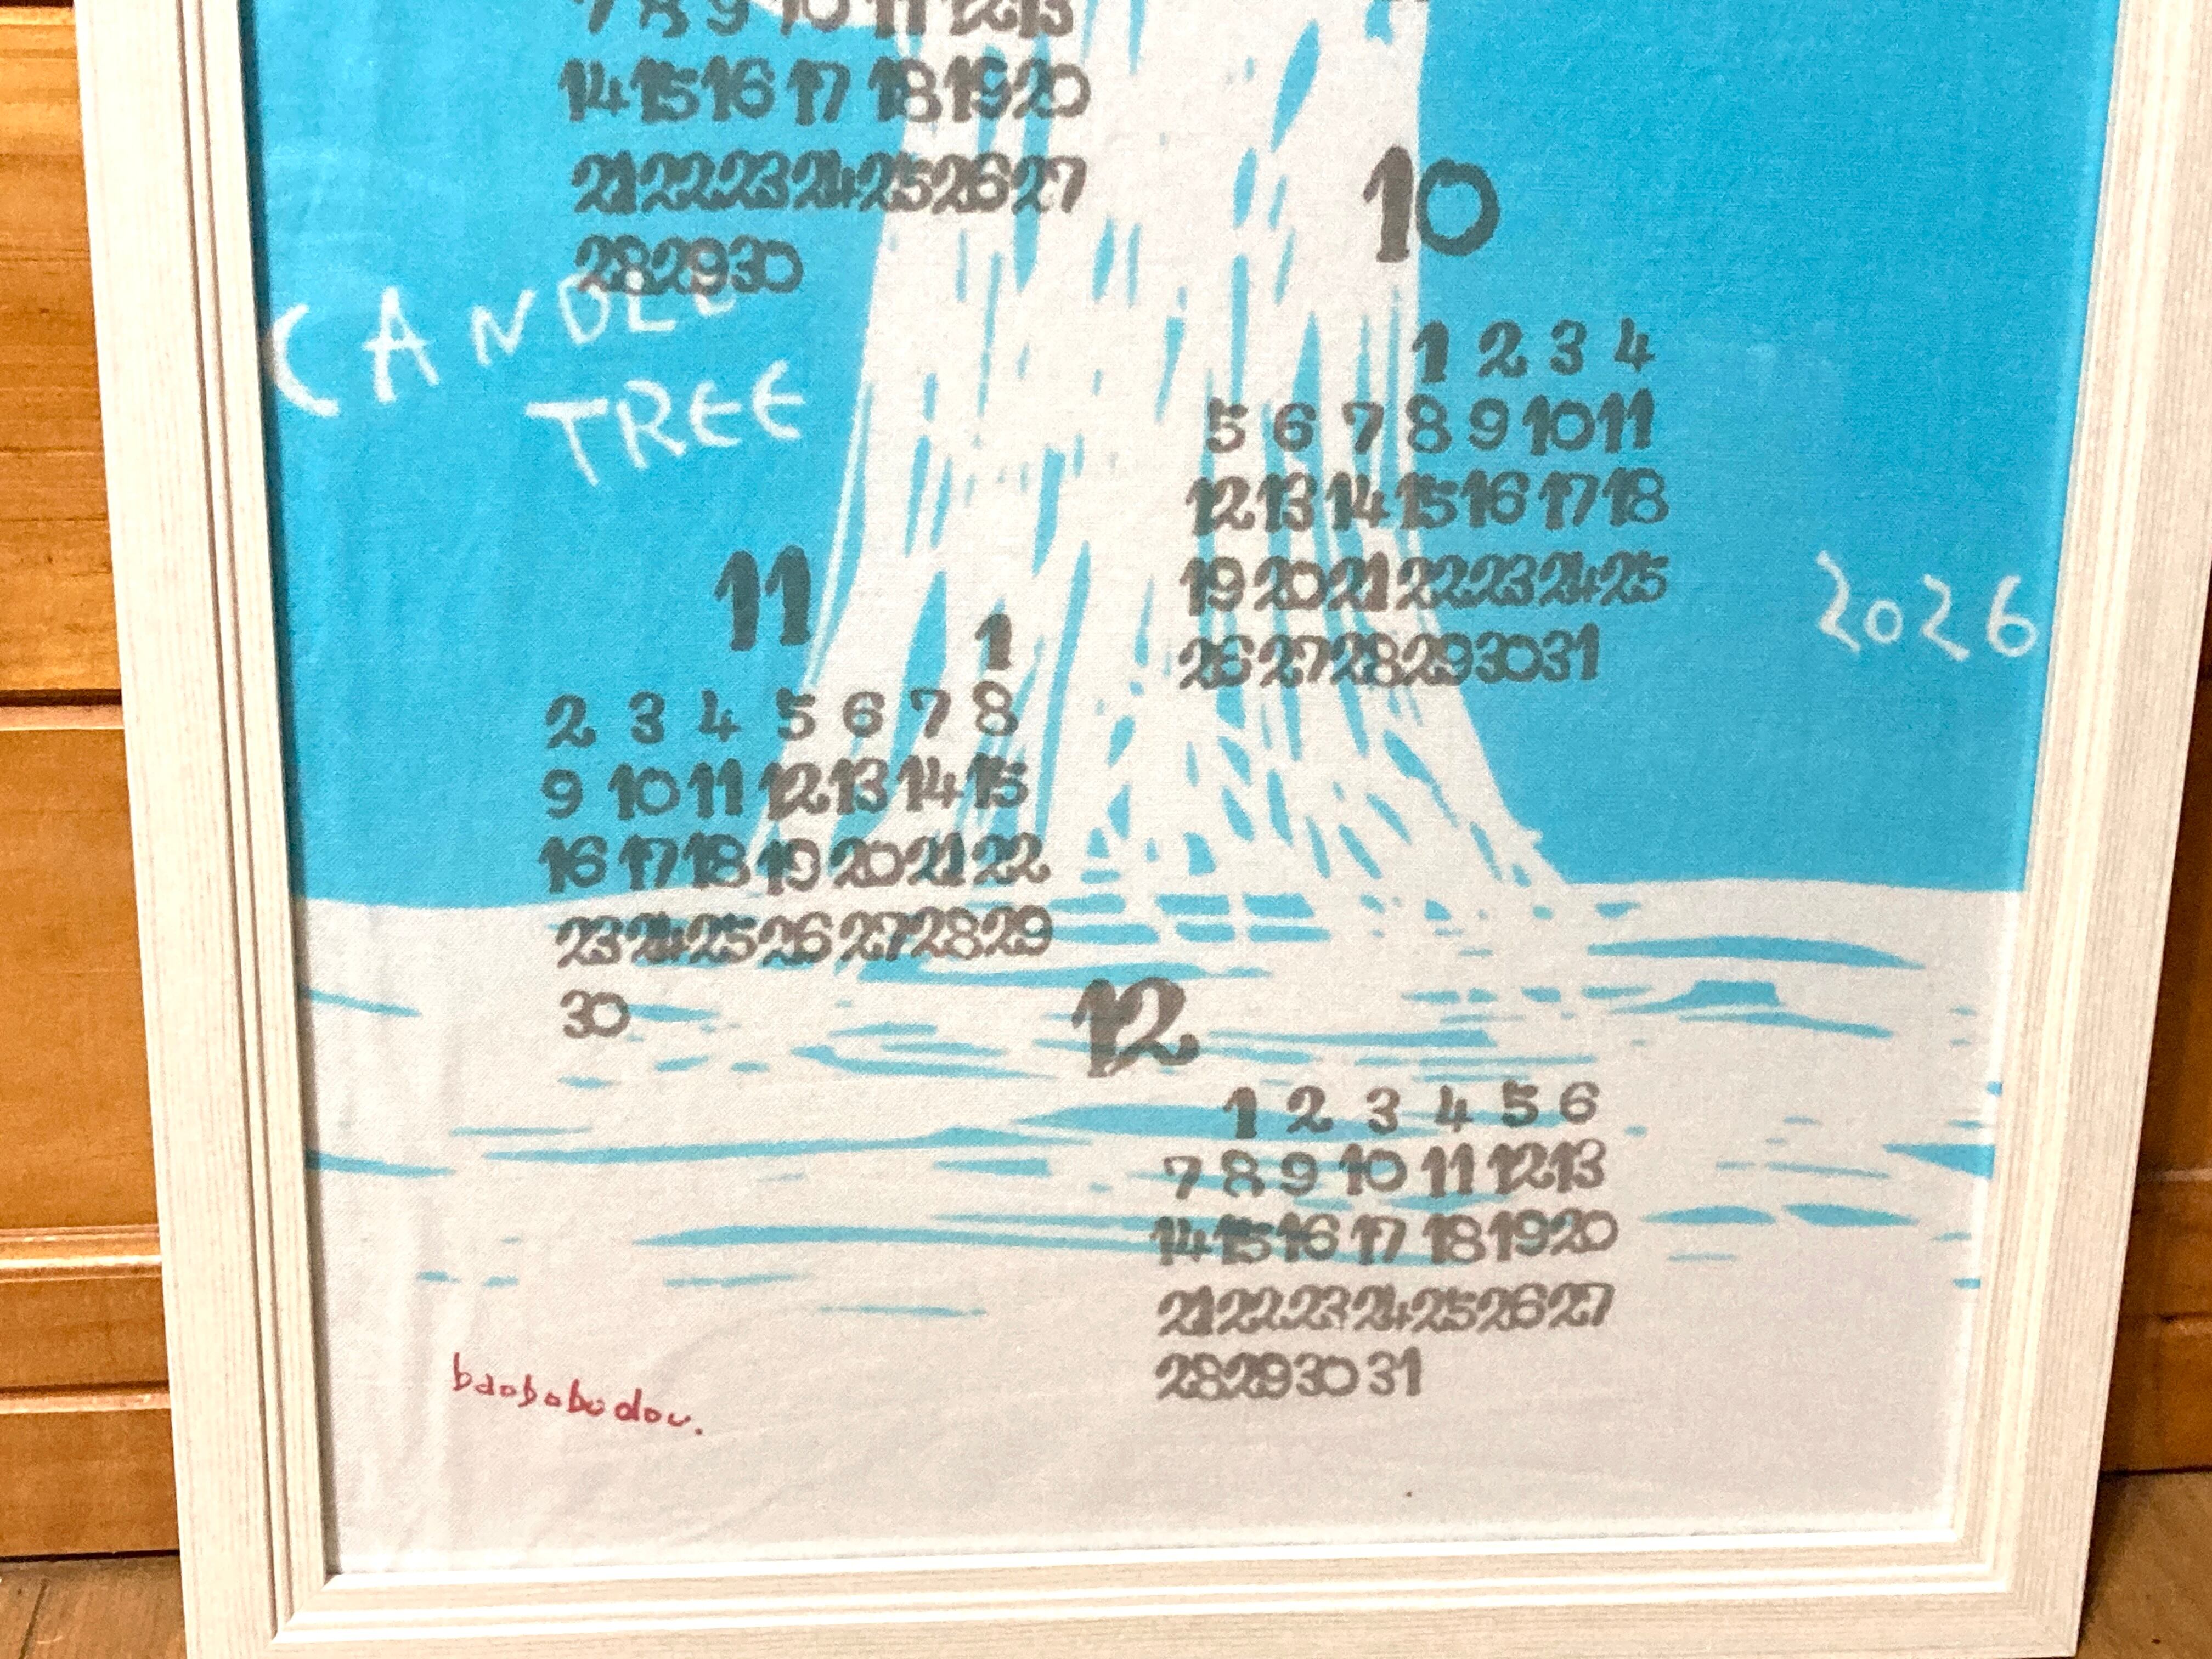 7 8 9 10 11 12 13
14 15 16 17 18 19 20
21 22 23 24 25 26 27
28 29 30
CANDLE
TREE
10
1 2 3 4
5 6 7 8 9 10 11
12 13 14 15 16 17 18
19 20 21 22 23 24 25
26 27 28 29 30 31
2026
11
1
2 3 4 5 6 7 8
9 10 11 12 13 14 15
16 17 18 19 20 21 22
23 24 25 26 27 28 29
30
12
1 2 3 4 5 6
7 8 9 10 11 12 13
14 15 16 17 18 19 20
21 22 23 24 25 26 27
28 29 30 31
baobabudou.